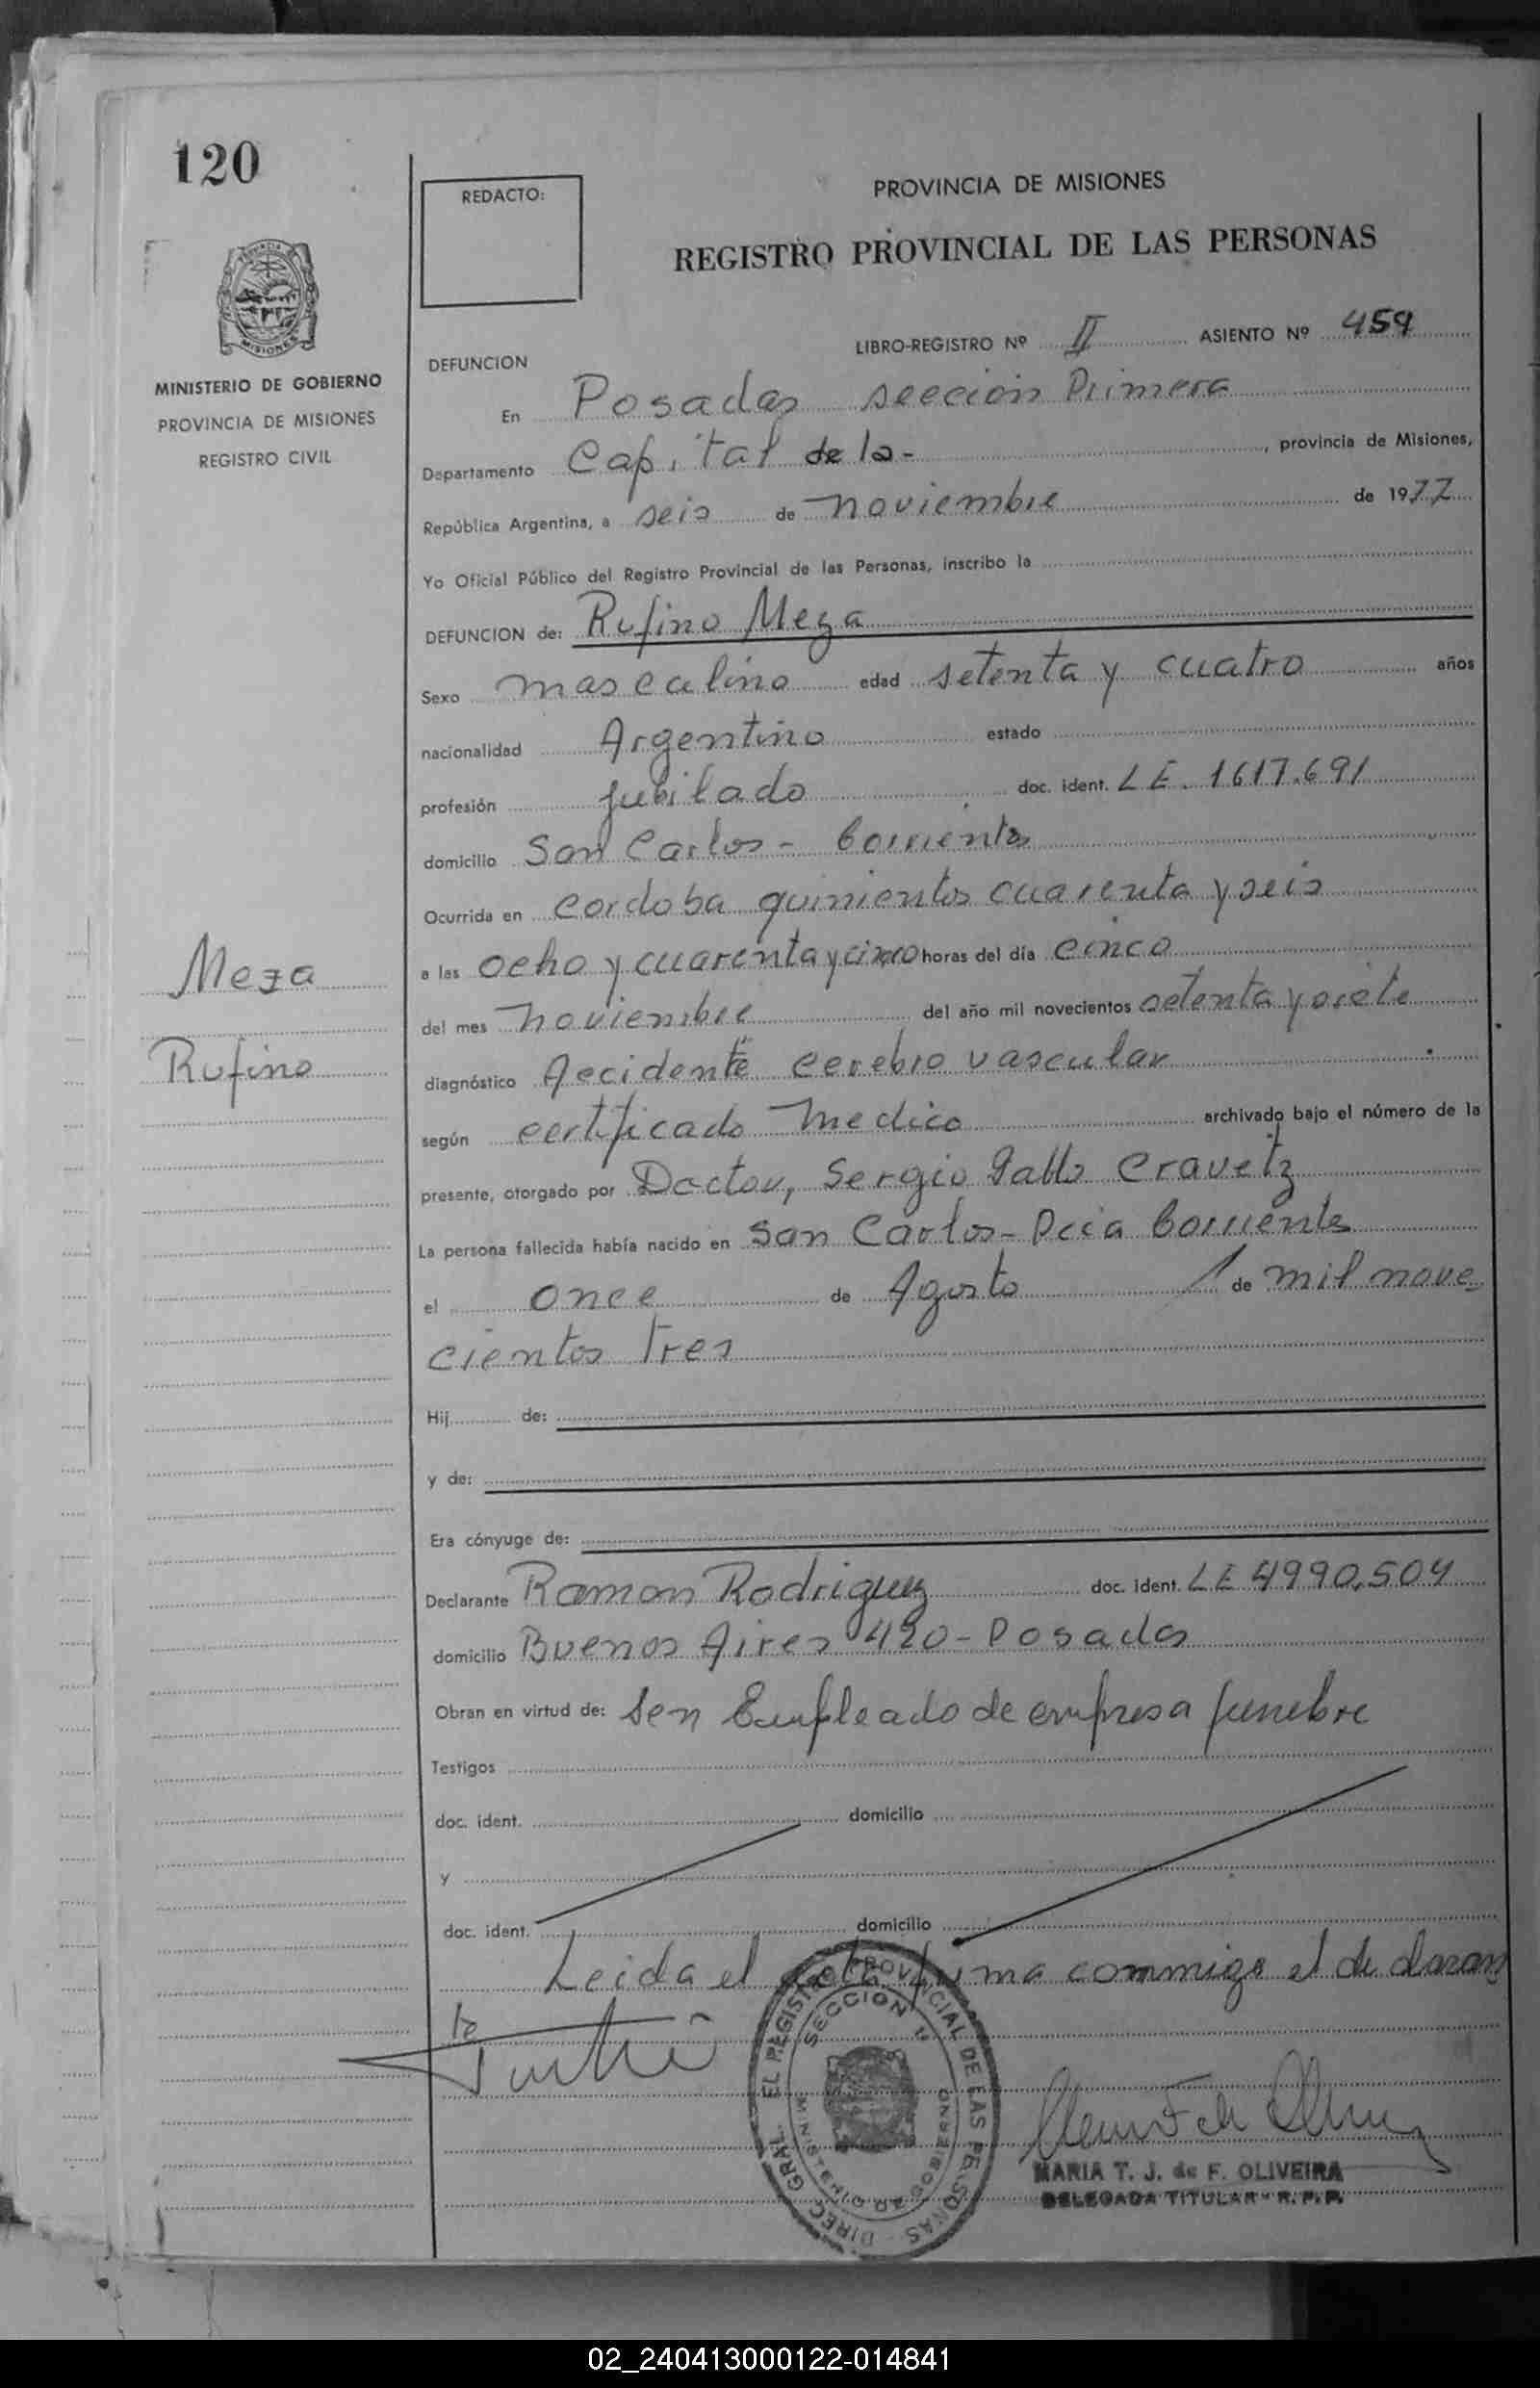 120
REDACTO:
PROVINCIA DE MISIONES
REGISTRO PROVINCIAL DE LAS PERSONAS
MISIONES
MINISTERIO DE GOBIERNO
PROVINCIA DE MISIONES
REGISTRO CIVIL
LIBRO-REGISTRO Nº II ASIENTO Nº 459
DEFUNCION
En Posadas seccion Primera
Departamento Capital de la- , provincia de Misiones,
República Argentina, a seis de noviembre de 1977
Yo Oficial Público del Registro Provincial de las Personas, inscribo la
DEFUNCION de: Rufino Meza
Sexo masculino edad setenta y cuatro años
nacionalidad Argentino estado
profesión jubilado doc. ident. LE. 1617.691
domicilio San Carlos - Corrientes
Ocurrida en Cordoba quinientos cuarenta y seis
Meza
a las ocho y cuarenta y cinco horas del día cinco
del mes noviembre del año mil novecientos setenta y siete
Rufino
diagnóstico Accidente cerebro vascular
según certificado medico archivado bajo el número de la
presente, otorgado por Doctor, Sergio Cravetz
La persona fallecida había nacido en San Carlos - Pcia Corrientes
el once de Agosto de mil nove
cientos tres
Hij de:
y de:
Era cónyuge de:
Declarante Ramon Rodriguez doc. ident. LE 4990.504
domicilio Buenos Aires 420 - Posadas
Obran en virtud de: ser Empleado de empresa funebre
Testigos
doc. ident. domicilio
y
doc. ident. domicilio
Leida el acta firma conmigo el declaran
te
DIREC. GRAL. EL REGISTRO PROVINCIAL DE LAS PERSONAS
SECCION 1ª
MINISTERIO DE GOBIERNO
MARIA T. J. de F. OLIVEIRA
DELEGADA TITULAR - R. P. P.
02_240413000122-014841